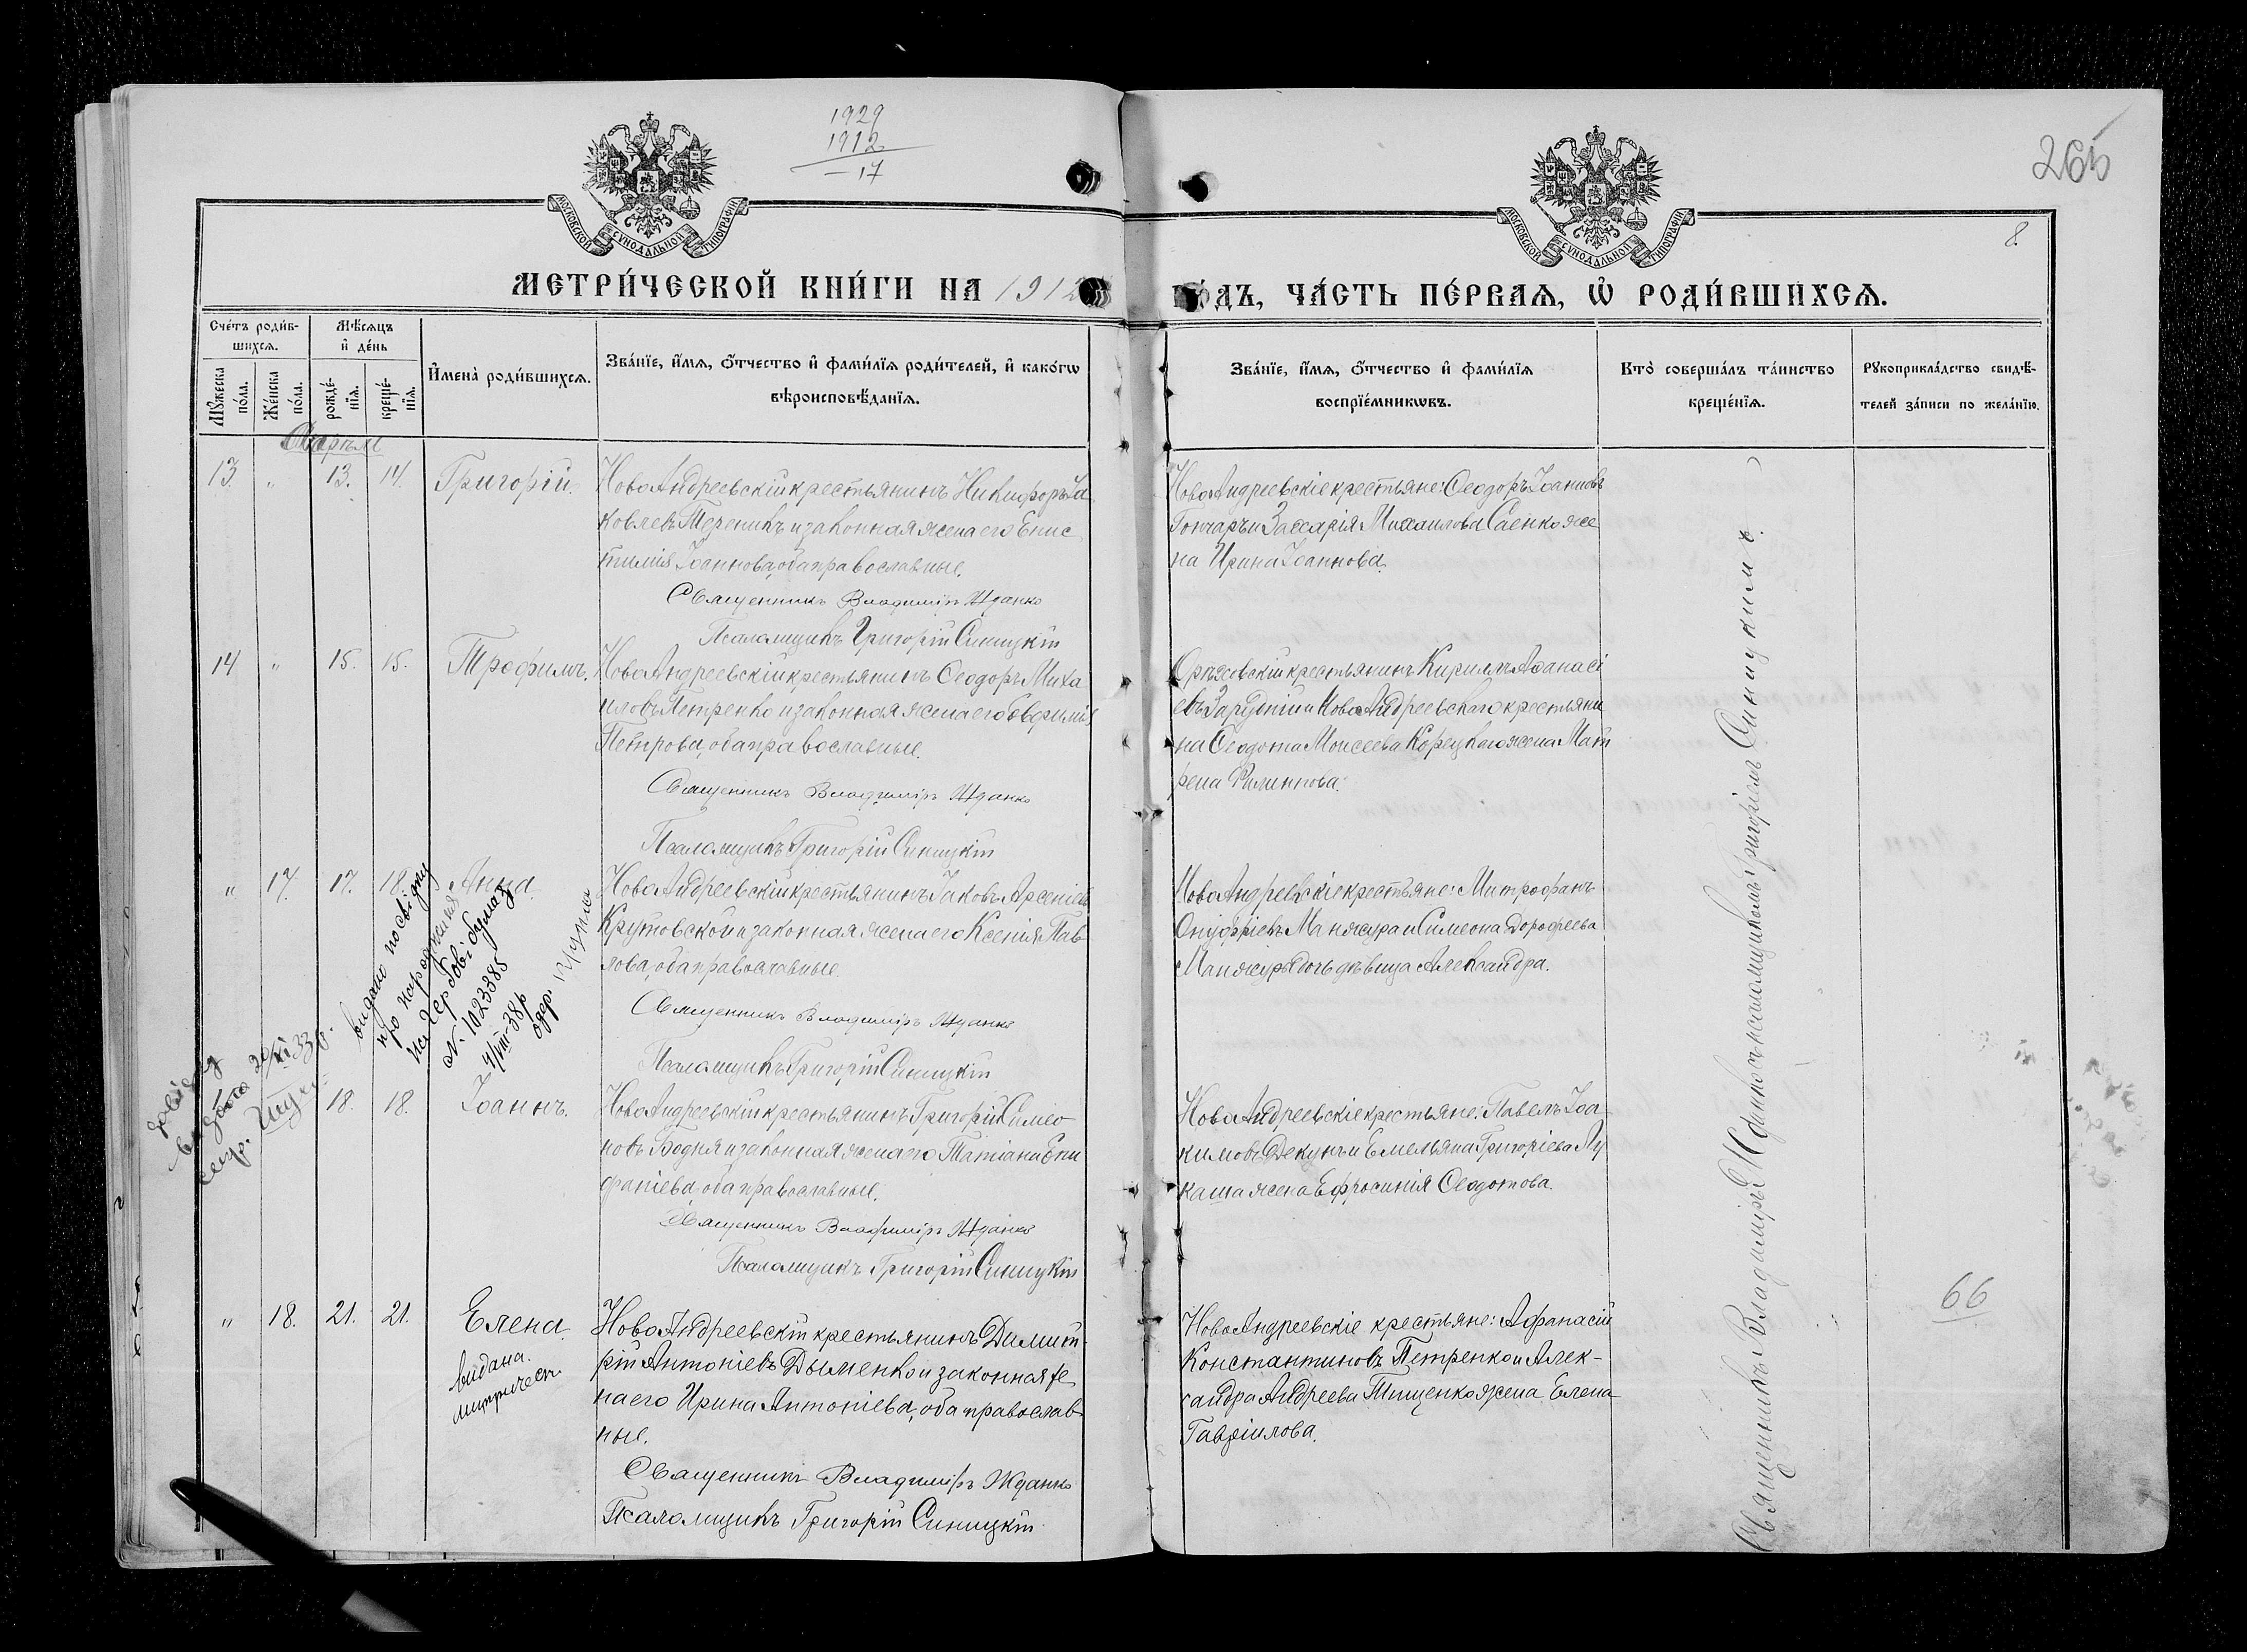 1929
1912
— 17
265
8.
МОСКОВСКОЙ СѴНОДАЛЬНОЙ ТИПОГРАФІИ
МОСКОВСКОЙ СѴНОДАЛЬНОЙ ТИПОГРАФІИ
МЕТРИ́ЧЕСКОЙ КНИ́ГИ НА 1912
ГО́ДЪ, ЧА́СТЬ ПЕ́РВАѦ, Ѡ҆ РОДИ́ВШИХСѦ.
Сче́тъ роди́в-
шихсѧ.
Мꙋ́жеска по́ла.
Же́нска по́ла.
Мѣ́сѧцъ
и҆ де́нь
рожде́-
нїѧ.
креще́-
нїѧ.
И҆мена̀ роди́вшихсѧ.
Зва́нїе, и҆́мѧ, ѻ҆́тчество и҆ фами́лїѧ роди́телей, и҆ како́гѡ
вѣроисповѣ́данїѧ.
Зва́нїе, и҆́мѧ, ѻ҆́тчество и҆ фами́лїѧ
воспрїе́мникѡвъ.
Кто̀ соверша́лъ та́инство
креще́нїѧ.
Рꙋкоприкла́дство свидѣ́-
телей за́писи по жела́нїю.
Апрѣль
13. " 13. 14. Григорій.
НовоАндреевскій крестьянинъ Никифоръ Іа
ковлевъ Тереникъ и законная жена его Епис
тимія Іоаннова, оба православные.
Священникъ Владиміръ Жданко
Псаломщикъ Григорій Синицкій
НовоАндреевскіе крестьяне: Ѳеодоръ Іоанновъ
Гончаръ и Захарія Михаилова Саенко же
на Ирина Іоаннова.
14 " 15. 15. Трофимъ.
НовоАндреевскій крестьянинъ Ѳеодоръ Миха
иловъ Петренко и законная жена его Евфимія
Петрова, оба православные.
Священникъ Владиміръ Жданко
Псаломщикъ Григорій Синицкій
Орѣховскій крестьянинъ Кириллъ Аѳанасі
евъ Зарудній и НовоАндреевскаго крестьяни
на Ѳеодота Моисеева Корецкаго жена Мат
рена Филиппова.
" 17. 17. 18. Анна.
НовоАндреевскій крестьянинъ Іаковъ Арсеніевъ
Крутовской и законная жена его Ксенія Пав
лова, оба православные.
Священникъ Владиміръ Жданко
Псаломщикъ Григорій Синицкій
НовоАндреевскіе крестьяне: Митрофанъ
Онуфріевъ Манжура и Симеона Дорофеева
Манжуры дочь дѣвица Александра.
видано посвідку
про народження
на гербові бумаз
N. 1023385
4/VIII-38р
одер.
видана 20/XI 33р.
сек.
18. 18. Іоаннъ.
НовоАндреевскій крестьянинъ Григорій Симео
новъ Бодня и законная жена его Татіана Епи
фаніева, оба православные.
Священникъ Владиміръ Жданко
Псаломщикъ Григорій Синицкій
НовоАндреевскіе крестьяне: Павелъ Іоа
кимовъ Декунъ и Емельяна Григоріева Лу
каша жена Ефросинія Ѳеодотова.
" 18. 21. 21. Елена.
видана.
метрическ.
НовоАндреевскій крестьянинъ Димит-
рій Антоніевъ Дыменко и законная же
на его Ирина Антоніева, оба православ
ные.
Священникъ Владиміръ Жданко
Псаломщикъ Григорій Синицкій.
НовоАндреевскіе крестьяне: Афанасій
Константиновъ Петренко и Алек-
сандра Андреева Тищенко жена Елена
Гавріилова.
66
Священникъ Владиміръ Жданко съ псаломщикомъ Григоріемъ Синицкимъ.